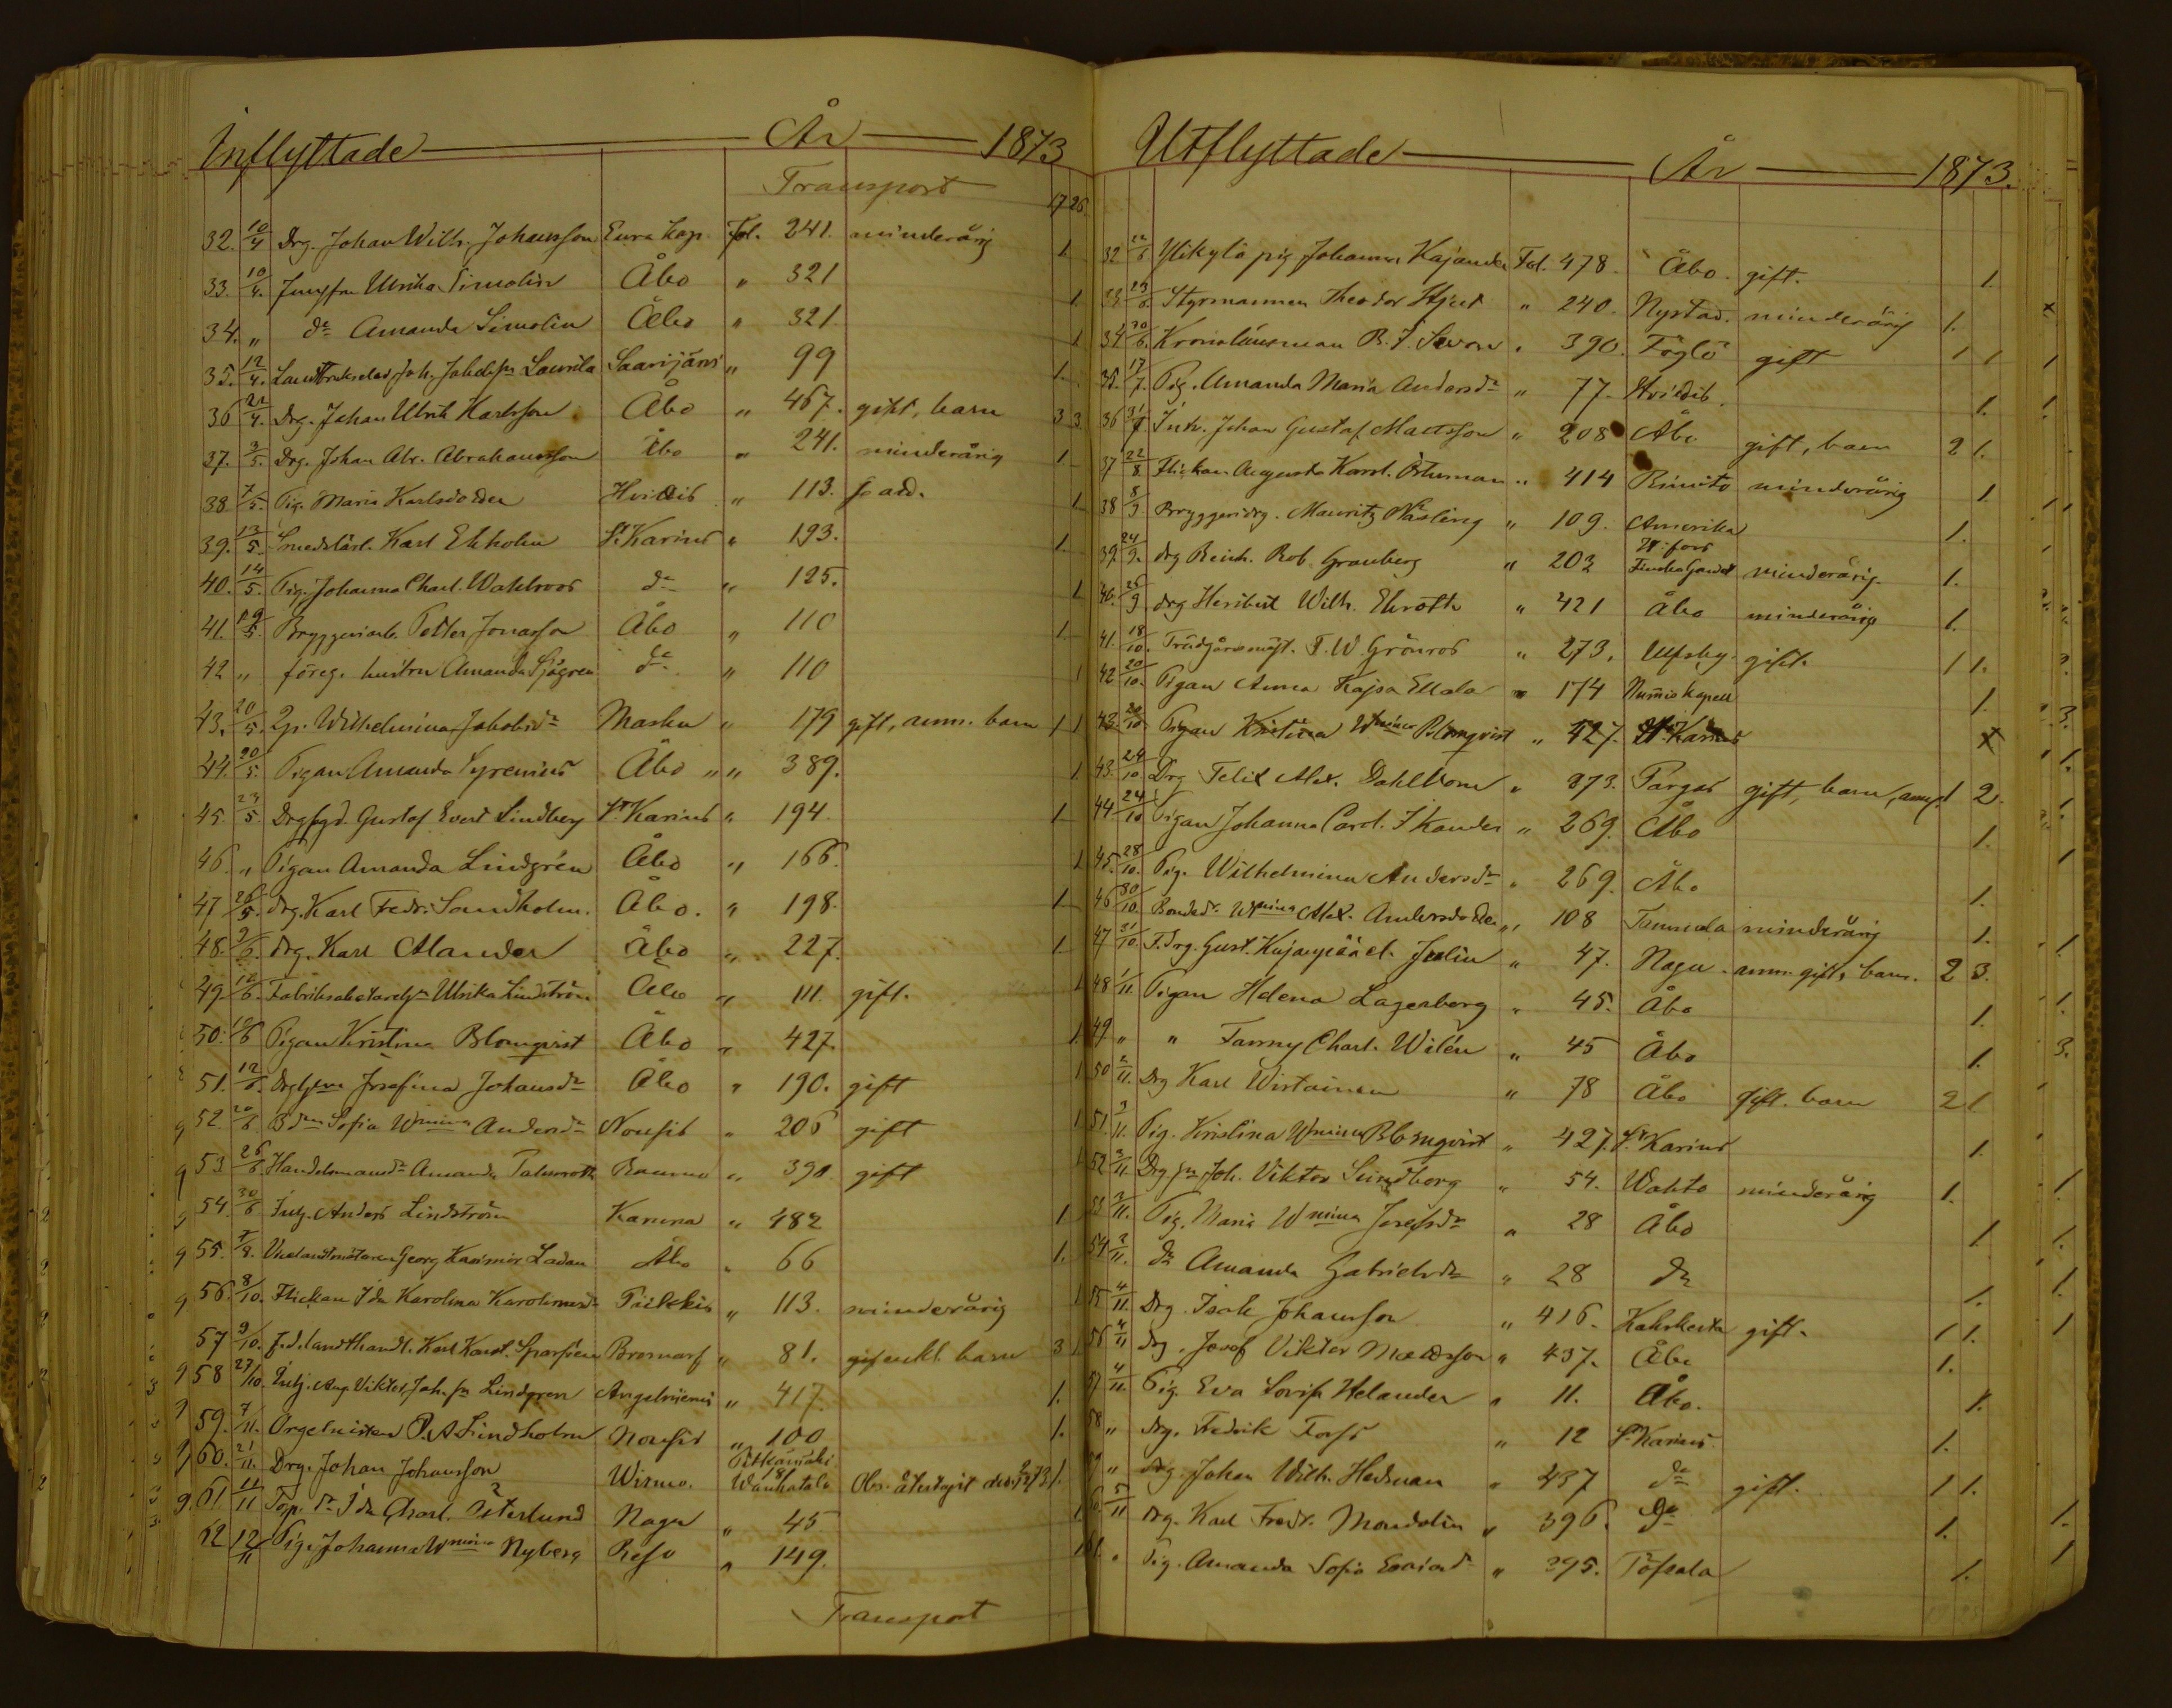 Inflyttade År 1873
Transport 17 26
32. 10/4 Drg. Johan Wilh. Johansson Eura Kap. Fol. 241. minderårig 1
33. 10/4. Jungfru Ulrika Simolin Åbo " 321 1
34. " do Amanda Simolin Åbo " 321. 1
35. 12/4. Joh. Laurila Saarijärvi " 99 1.
36 21/4. Drg. Johan Ulrik Karlsson Åbo " 467. gift, barn 3 3.
37. 3/5. Drg. Johan Abr. Abrahamsson Åbo " 241. minderårig 1.
38 7/5. Pig. Maria Karlsdotter Hvidtis " 113. 1
39. 13/5. Smedslärl. Karl Ekholm St Karins " 193. 1.
40. 14/5. Pig. Johanna Charl. Wahlroos do " 125. 1
41. 19/5. Bryggeriarb. Petter Jonasson Åbo " 110 1.
42 " föreg. hustru Amanda Sjögren do " 110 1
43. 20/5. Wilhelmina Jakobsdr Masku " 179 gift, barn 1 1
44. 20/5. Pigan Amanda Syrenius Åbo " " 389. 1.
45. 23/5. Gustaf Evert Lindberg St Karins " 194. 1
46. " Pigan Amanda Lindgrén Åbo " 166. 1
47 26/5. drg. Karl Fredr. Sandholm. Åbo. " 198. 1
48. drg. Karl Alander Åbo " 227. 1
49. Ulrika Lindström Åbo " 111. gift. 1
50. Pigan Kristina Blomqvist Åbo " 427. 1
51. 12/6. Josefina Johansdr Åbo " 190. gift 1
52. 20/6. Sofia Wmina Andersdr Nousis " 206 gift 1
53 26/6. Amanda Palmroth Raumo " 390. gift 1
54. 30/6 Anders Lindström Karuna " 482 1
55. 7/8. Georg Kasimir Ladau Åbo " 66 1.
56. 8/10. Flickan Ida Karolina Pikkis " 113. minderårig 1
57 9/10. f.d. landthandl. Karl Bromarf " 81. barn 3
58 27/10. Aug. Viktor Lindgren Angelniemi " 417. 1.
59. 7/11. Orgelnisten P. A. Lindholm Nousis " 100 1.
60. 21/11. Drg. Johan Johansson Wirmo. Wanhatalo Obs. 1.
61 11/11 Ida Charl. Österlund Nagu " 45 1
62 12/11 Pig. Johanna Wmina Nyberg Reso " 149. 1
Transport
Utflyttade År 1873.
32 Ylikylä pig Johanna Kajander Fol. 478. Åbo. gift. 1
33 Styrmannen Theodor Hjelt " 240. Nystad. minderårig 1.
34 30/6. Kronolänsman " 390. Föglö gift 1 1
35. 17/7. Pig. Amanda Maria Andersdr " 77. Hvidtis. 1.
36 Inh. Johan Gustaf Mattsson " 208 Åbo. gift, barn 2 1.
37 22/8. Flickan Augusta Karol. Österman " 414 Rimito minderårig 1
38 8/9 Bryggeridrg. Mauritz Näsling " 109. Amerika 1.
39. 24/9. drg Reinh. Rob. Granberg " 203 H:fors Finska Gardet minderårig. 1.
40. 25/9. drg Heribert Wilh. Ekroth " 421 Åbo minderårig 1.
41. 18/10. Trädgårdsmäst. F. W. Grönros " 273. Ulfsby. gift. 1 1.
42 20/10. Pigan Anna Kajsa Ellala " 174 Nummis Kapell 1.
43 20/10. Pigan Kristina Wmina Blomqvist " 427. St Karins x
43. 24/10 Drg Felix Alex. Dahlbom " 273. Pargas gift, barn, 2.
44 24/10 Pigan Johanna Carol. " 269. Åbo 1.
45. 28/10. Pig. Wilhelmina Andersdr " 269. Åbo 1.
46 30/10. Wmina Alex. Andersdotter " 108 Tammela minderårig 1.
47 31/10. Gust. Julin " 47. Nagu. gift, barn. 2 3.
48 1/11. Pigan Helena Lagerborg " 45. Åbo 1.
49. " " Fanny Charl. Wilén " 45 Åbo 1.
50 2/11. Drg Karl Wirtainen " 78 Åbo gift. barn 2 1
51. 3/11. Pig. Kristina Wmina Blomqvist " 427. St Karins 1
52 3/11. Joh. Viktor Sundborg " 54. Wahto minderårig 1.
53 3/11. Pig. Maria Wmina Josefsdr " 28 Åbo 1.
54 3/11. do Amanda Gabrielsdr " 28 do 1.
55 4/11. Drg. Isak Johansson " 416. Kakskerta gift. 1 1.
56 4/11 drg. Josef Viktor " 437. Åbo 1.
57 4/11. Pig. Eva Lovisa Helander " 11. Åbo. 1.
58 " drg. Fredrik Forss " 12 St Karins 1.
59 " drg. Johan Wilh. Hedman " 437 do gift. 1 1.
60. 5/11 drg. Karl Fredr. Mondolin " 396. do 1.
61. " Pig. Amanda Sofia " 395. Töfsala 1.